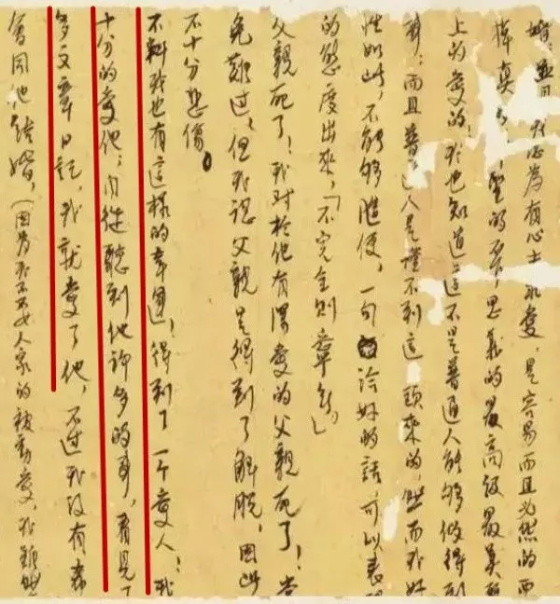 婚 我認為有心去求愛，是容易而且必然的而
掉真 聖的不 思義的最高級最美麗
上的愛的！我也知道這不是普通人能夠做得到
事，而且普通人是談不到這 頭來的，然而我好
性如此，不能夠隨便，一句恰好的話，可以表現
的態度出來，「不完全則寧無」
父親死了！我對於他有深愛的父親死了！當
免難過，但我認父親是得到了解脫，因此
不十分悲傷。
不料我也有這樣的幸運！得到了一个愛人！我
十分的愛他；自從聽到他許多的事，看見了
多文章日記，我就愛了他，不过我沒有希
會同他結婚，（因為我不要人家的被動愛，我雖然